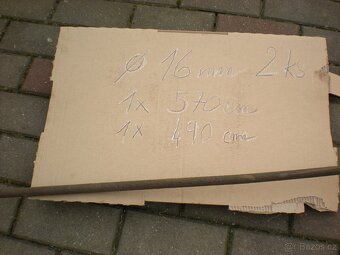 Ø 16mm 2ks
1x 570cm
1x 490cm
© Bazos.cz